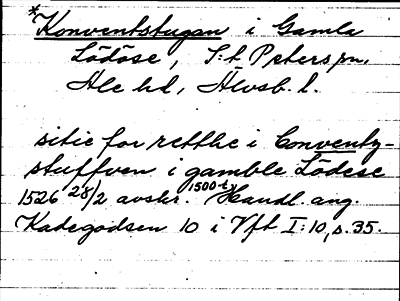 *Konventstugan i Gamla
Lödöse, S:t Peters sn,
Ale hd, Älvsb. l.
sitie for retthe i Conventz-
stuffven i gamble Lödese
1526 28/2 avskr. 1500-t, Handl. ang.
Kadegodsen 10 i Vft I:10, s. 35.